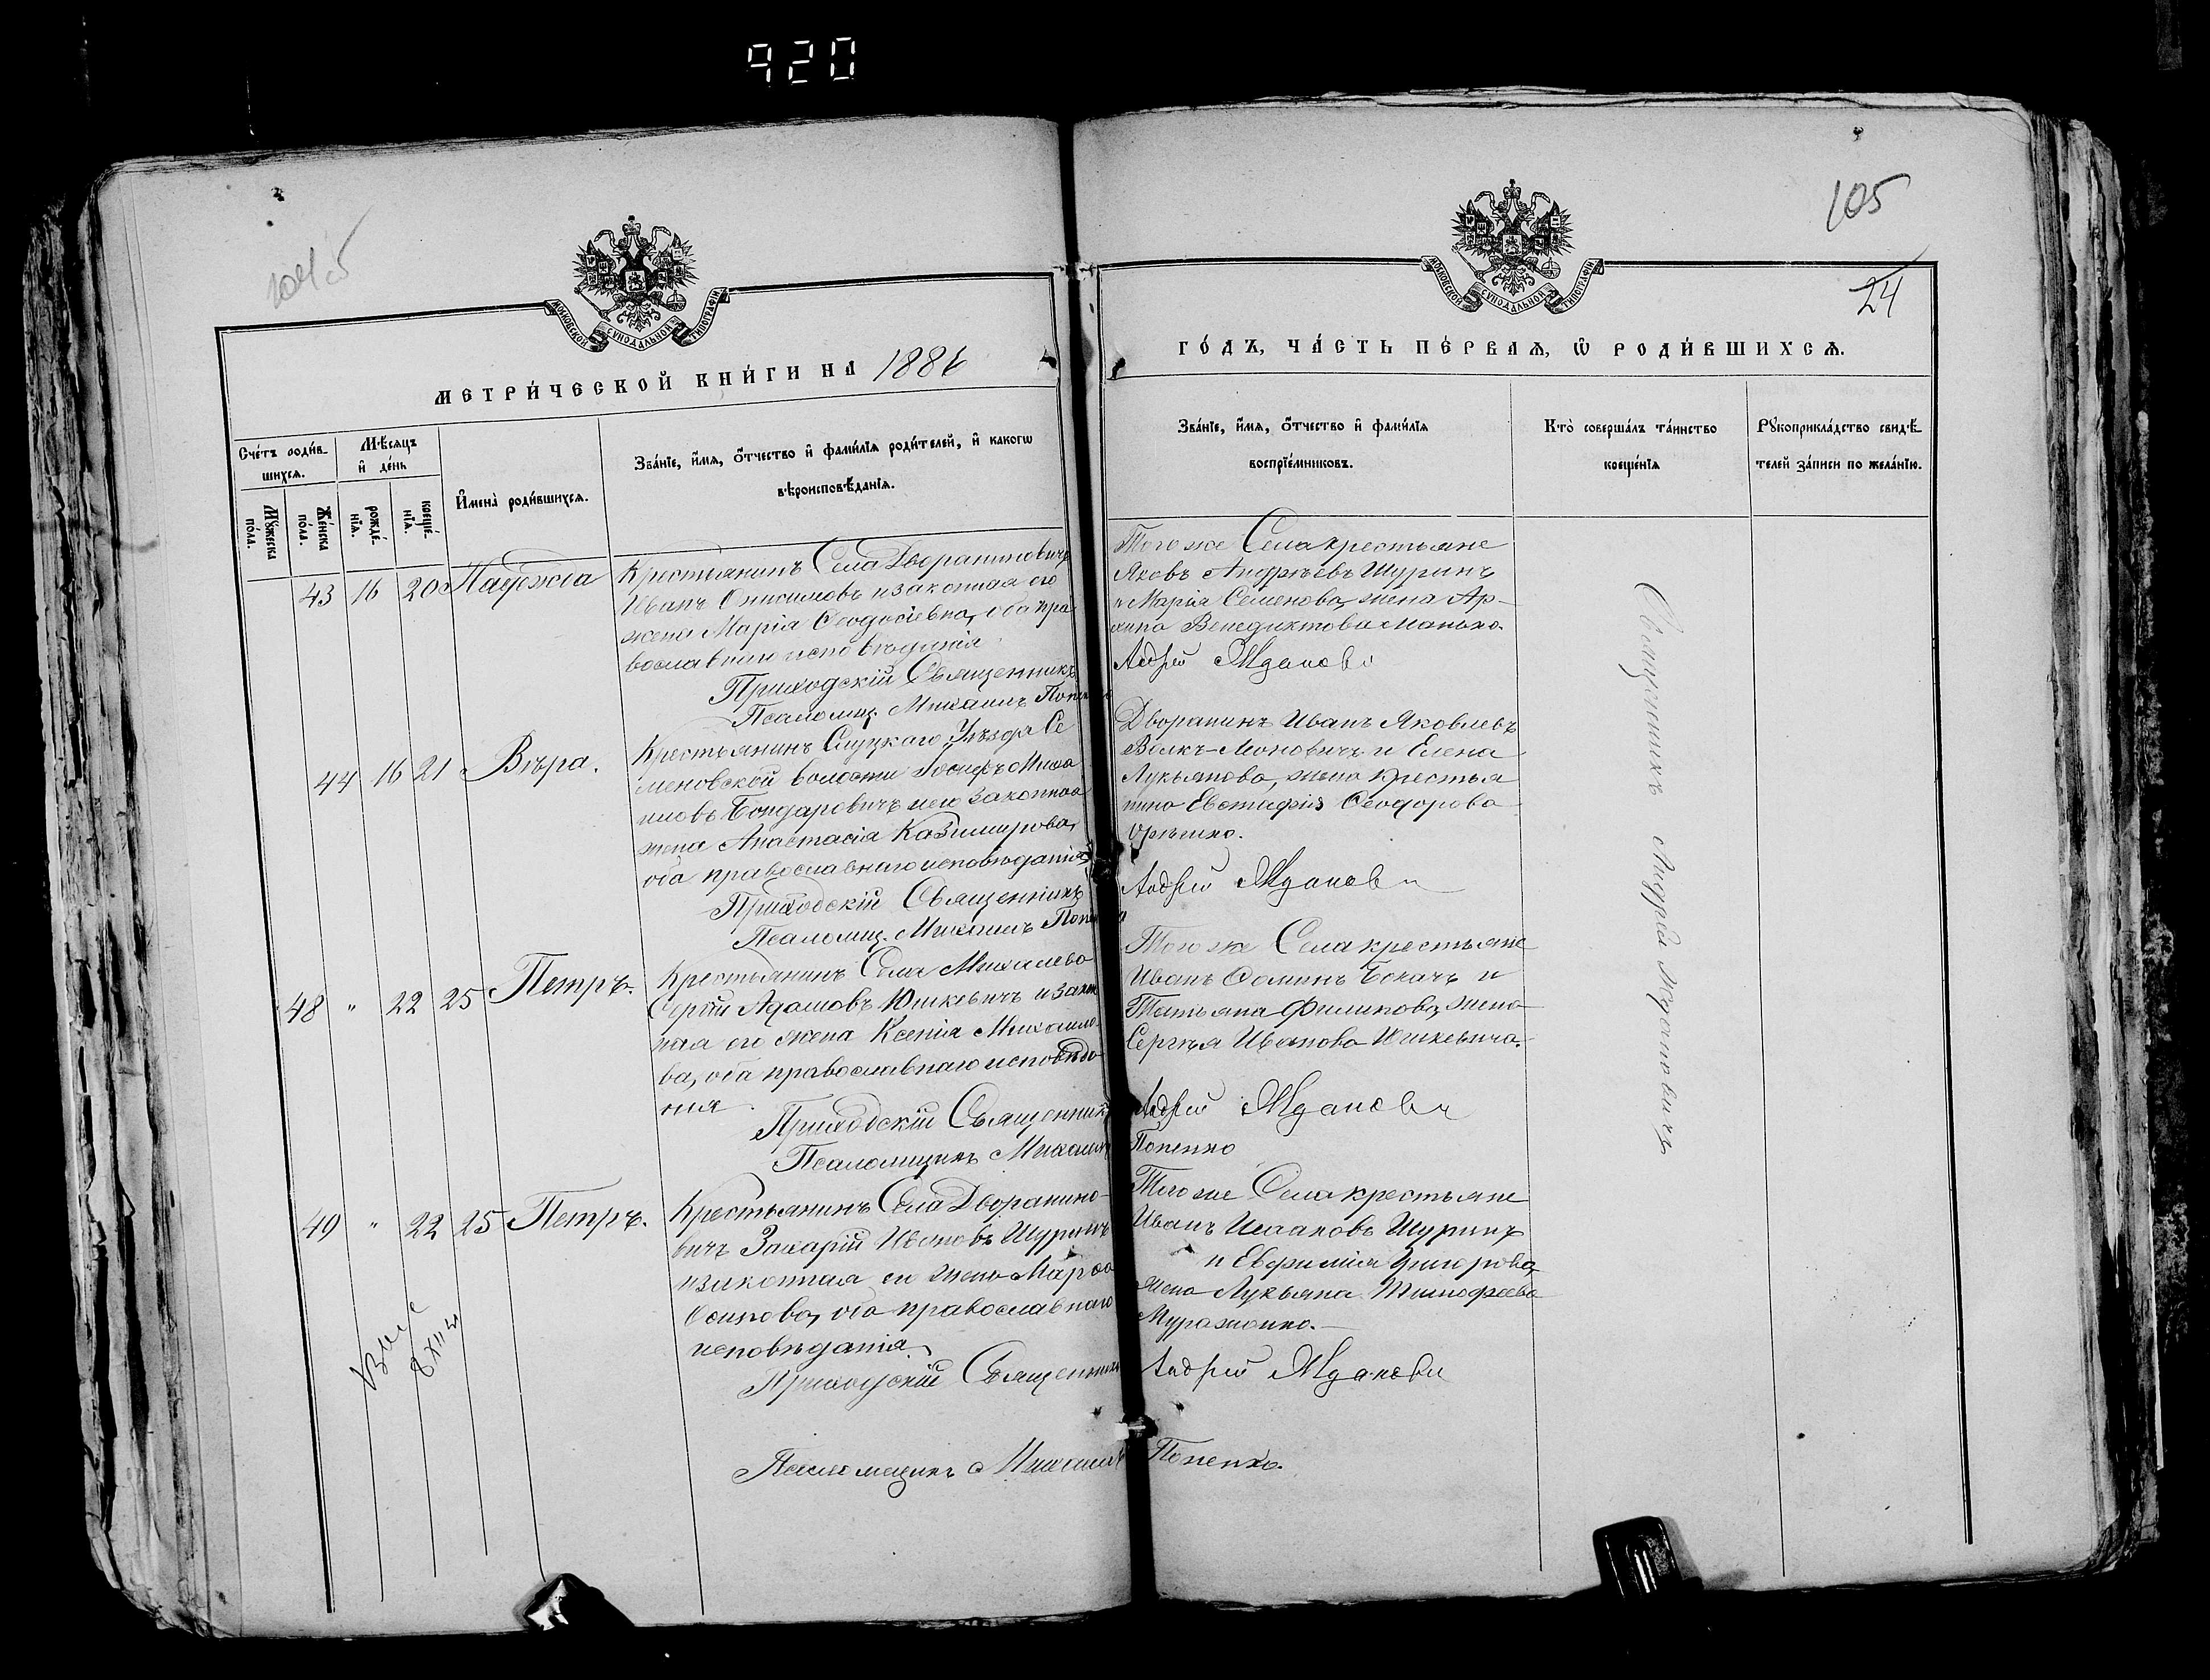 920
105
24
МОСКОВСКОЙ СУНОДАЛЬНОЙ ТИПОГРАФІИ
МОСКОВСКОЙ СУНОДАЛЬНОЙ ТИПОГРАФІИ
МЕТРИ́ЧЕСКОЙ КНИ́ГИ НА 1886
ГО́ДЪ, ЧА́СТЬ ПЕ́РВАЯ, Ѡ҆ РОДИ́ВШИХСЯ.
Сче́тъ роди́вшихся.
Мꙋ́жеска по́ла.
Же́нска по́ла.
Мѣ́сяцъ и҆ де́нь
рожде́нїя.
креще́нїя.
И҆мена̀ роди́вшихся.
Зва́нїе, и҆́мя, ѻ҆́тчество и҆ фами́лїя роди́телей, и҆ какогѡ
вѣроисповѣ́данїя.
Зва́нїе, и҆́мя, ѻ҆́тчество и҆ фами́лїя
воспрїе́мниковъ.
Кто̀ соверша́лъ та́инство
креще́нїя
Рꙋкоприкла́дство свидѣ́-
телей за́писи по жела́нїю.
43 16 20 Надежда
Крестьянинъ Села Дворяниновичъ
Иванъ Онисимовъ и законная его
жена Марія Ѳеодосіевна, оба пра
вославнаго исповѣданія
Приходскій Священникъ
Псаломщ. Михаилъ
Того же Села крестьяне
Яковъ Андрѣевъ Шуринъ
и Марія Семенова, жена Ар-
хипа Венедиктова Манько.
Андрей Ждановичъ
44 16 21 Вѣра.
Крестьянинъ Слуцкаго Уѣзда Се
меновской волости Іосифъ Миха
иловъ Бондаровичъ и его законная
жена Анастасія Казимирова,
оба православнаго исповѣданія
Приходскій Священникъ
Псаломщ. Михаилъ
Дворянинъ Иванъ Яковлевъ
Волкъ-Леоновичъ и Елена
Лукьянова, жена крестья
нина Евстафія Ѳеодорова
Орѣшко.
Андрей Ждановичъ
48 " 22 25 Петръ.
Крестьянинъ Села Михалево
Сергій Адамовъ Юшкевичъ и закон
ная его жена Ксенія Михаило
ва, оба православнаго исповѣда
нія
Приходскій Священникъ
Псаломщикъ Михаилъ
Того же Села крестьяне
Иванъ Ѳоминъ Бохачъ и
Татьяна Филипова, жена
Сергѣя Иванова Юшкевича.
Андрей Ждановичъ
Попенко
49 " 22 25 Петръ.
Крестьянинъ Села Дворянино-
вичъ Захарій Ивановъ Шуринъ
и законная его жена Марѳа
Осипова, оба православнаго
исповѣданія
Приходскій Священникъ
Псаломщикъ Михаилъ
Того же Села крестьяне
Иванъ Исааковъ Шуринъ
и Евфимія Григорова,
жена Лукьяна Тимофеева
Муражко.
Андрей Ждановичъ
Попенко.
Священникъ Андрей Ждановичъ